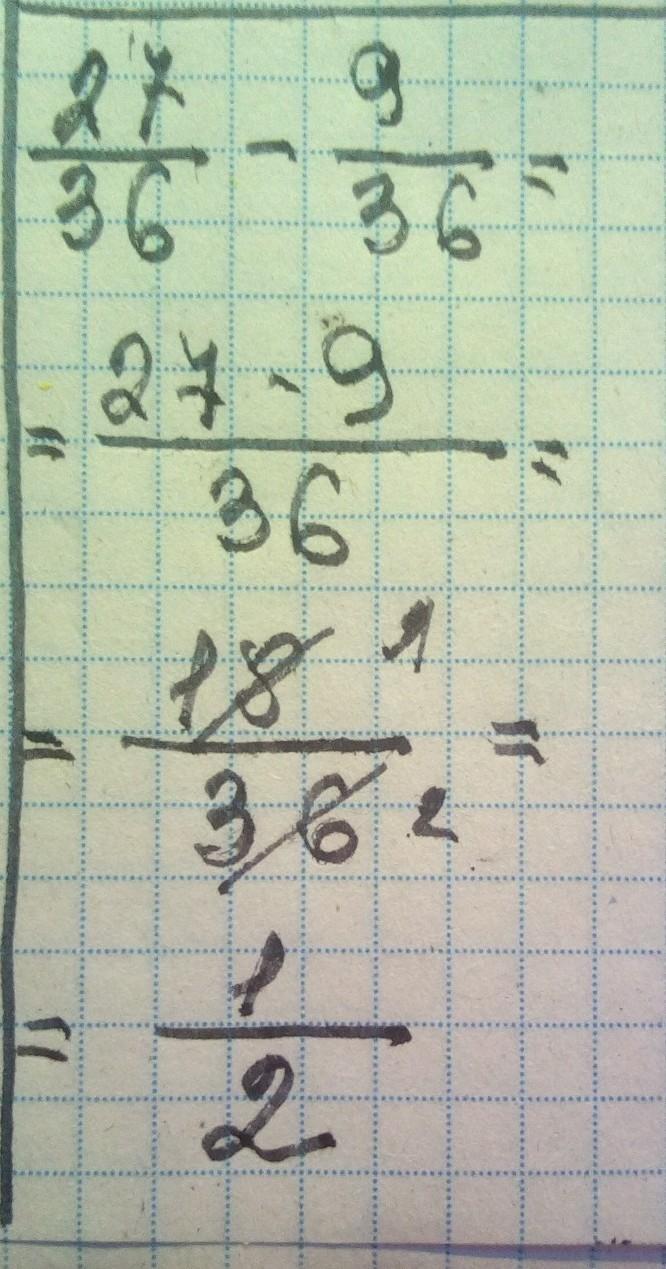 27/36 - 9/36 =
= 27 - 9/36 =
= 18/36 1/2 =
= 1/2